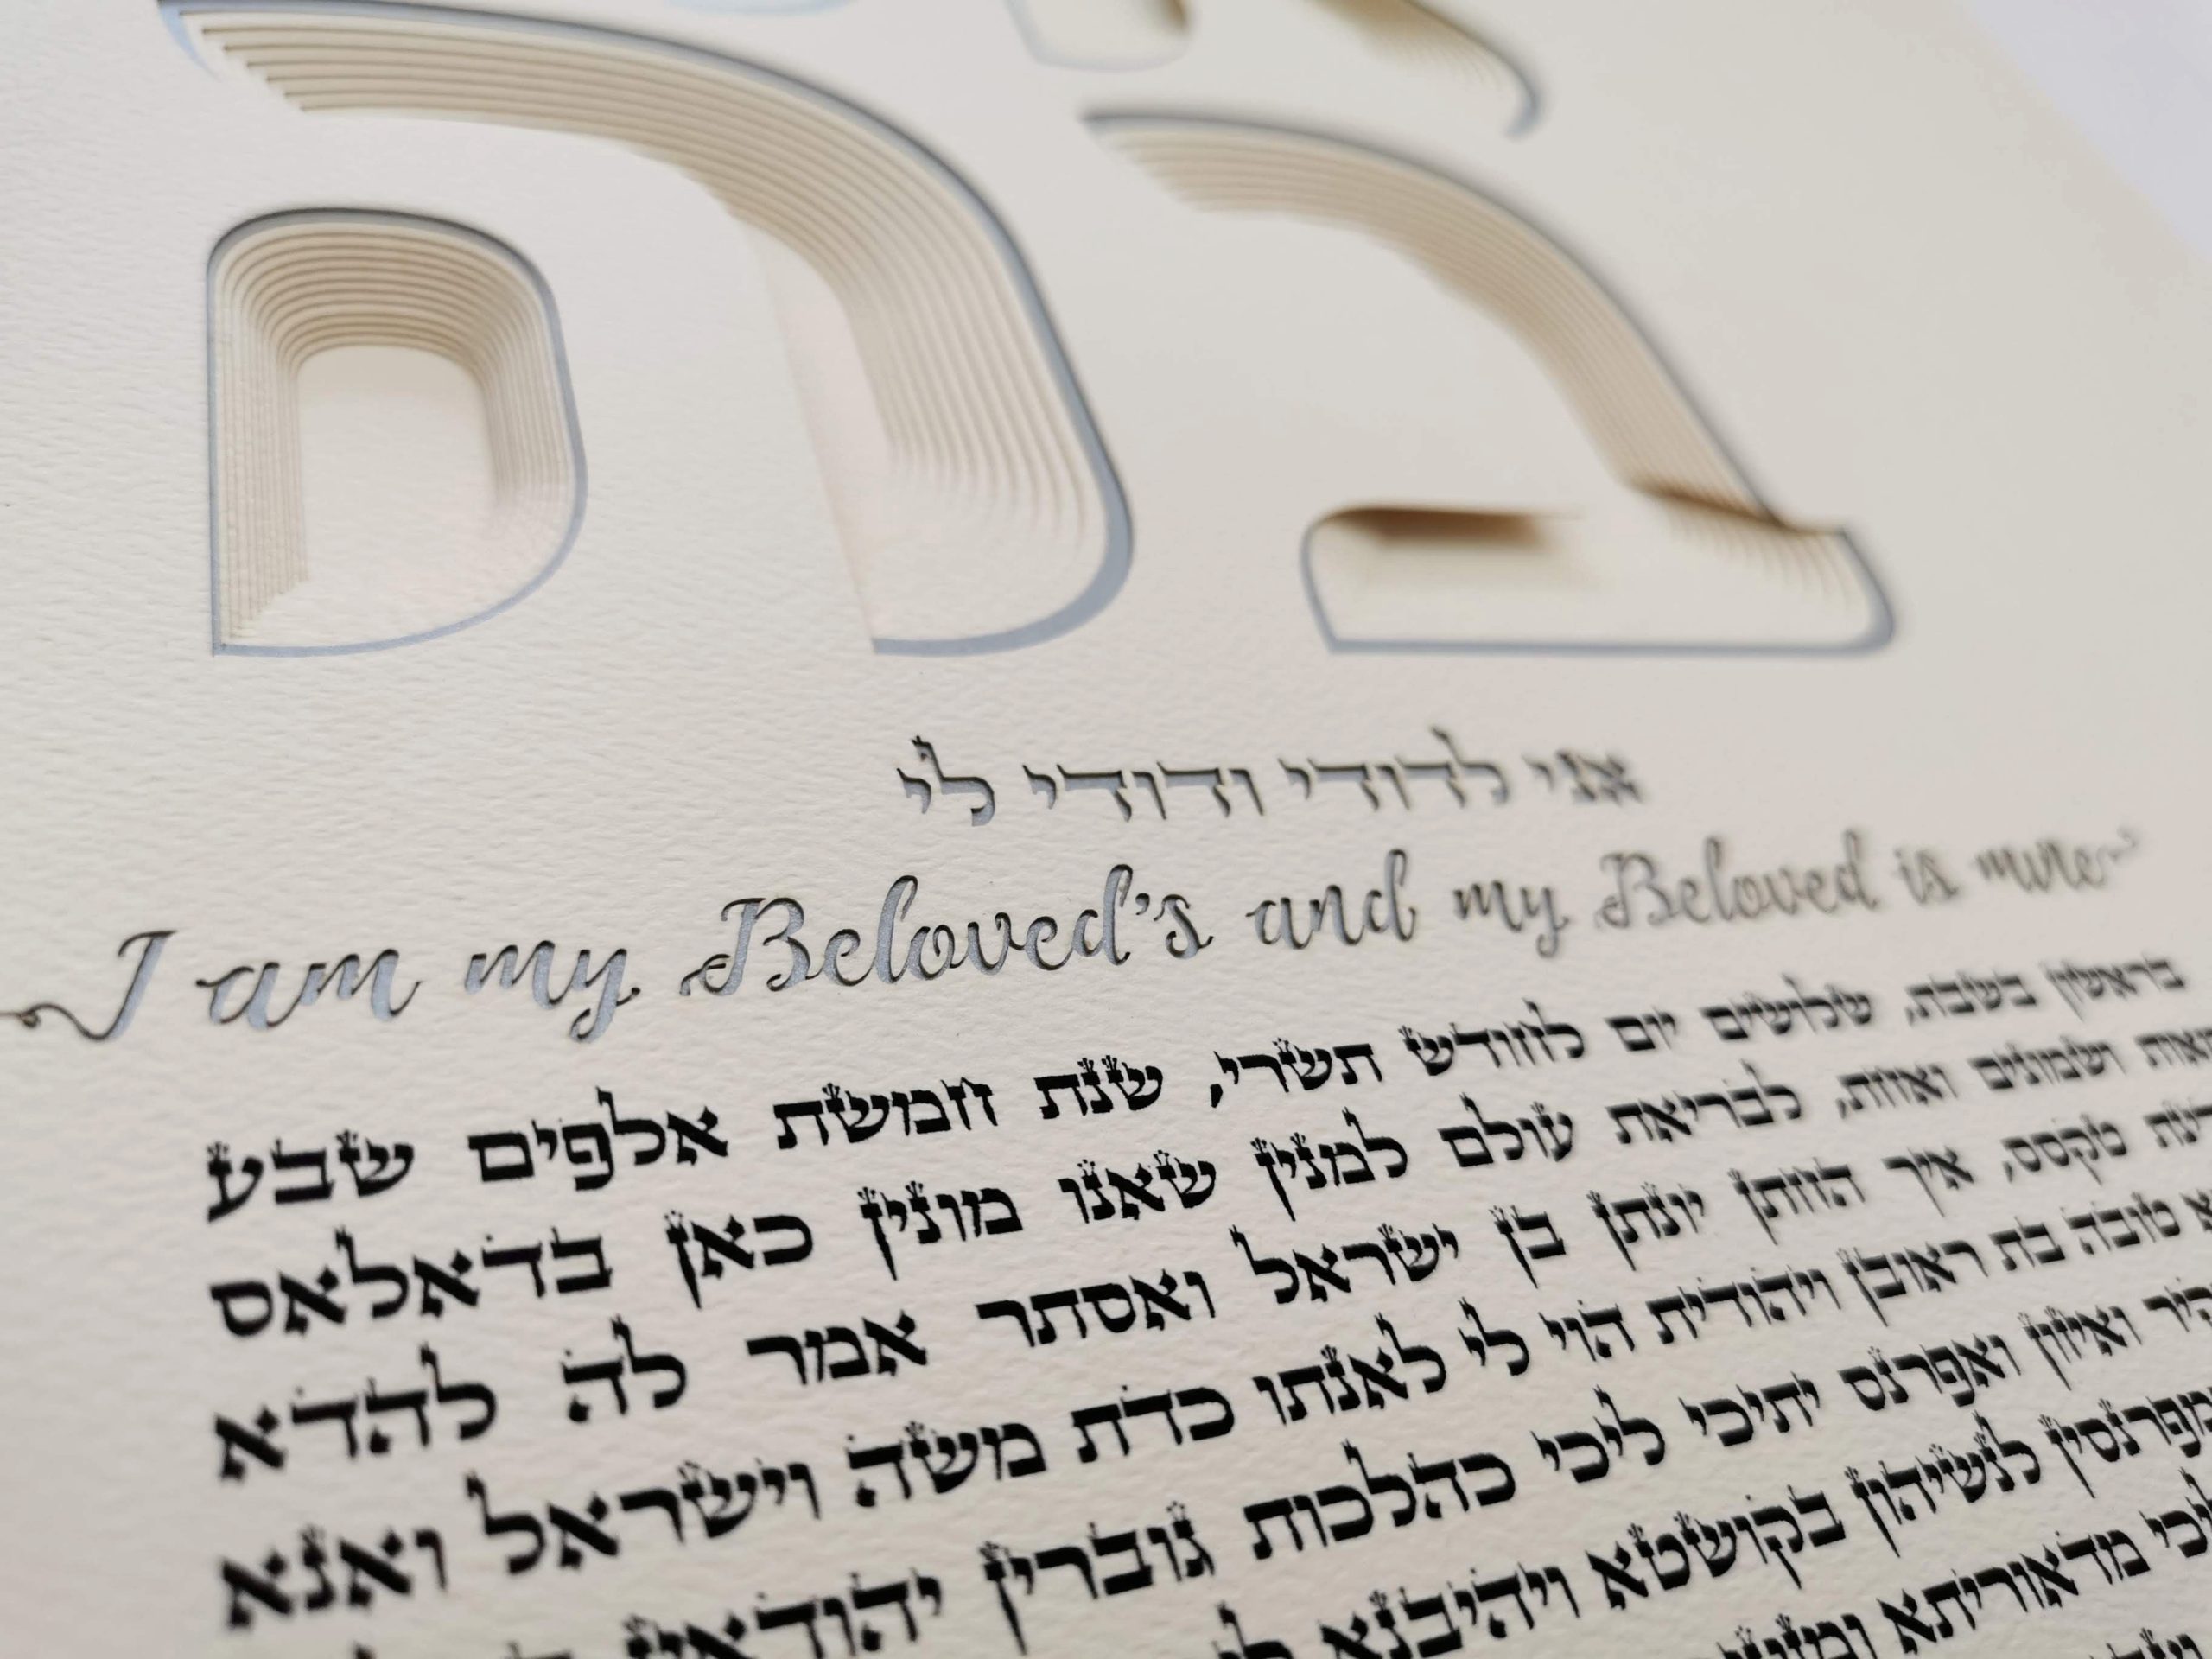 בה
אני לדודי ודודי לי
I am my Beloved's and my Beloved is mine
בראשון בשבת, שלושים יום לחודש תשרי, שנת חמשת אלפים שבע
מאות ושמונים ואחת, לבריאת עולם למנין שאנו מונין כאן בדאלאס
טקסס, איך החתן יונתן בן ישראל ואסתר אמר לה להדא
טובה בת ראובן ויהודית הוי לי לאנתו כדת משה וישראל ואנא
ואיזון ואפרנס יתיכי ליכי כהלכות גוברין יהודאין
ומפרנסין לנשיהון בקושטא ויהיבנא
מדאוריתא